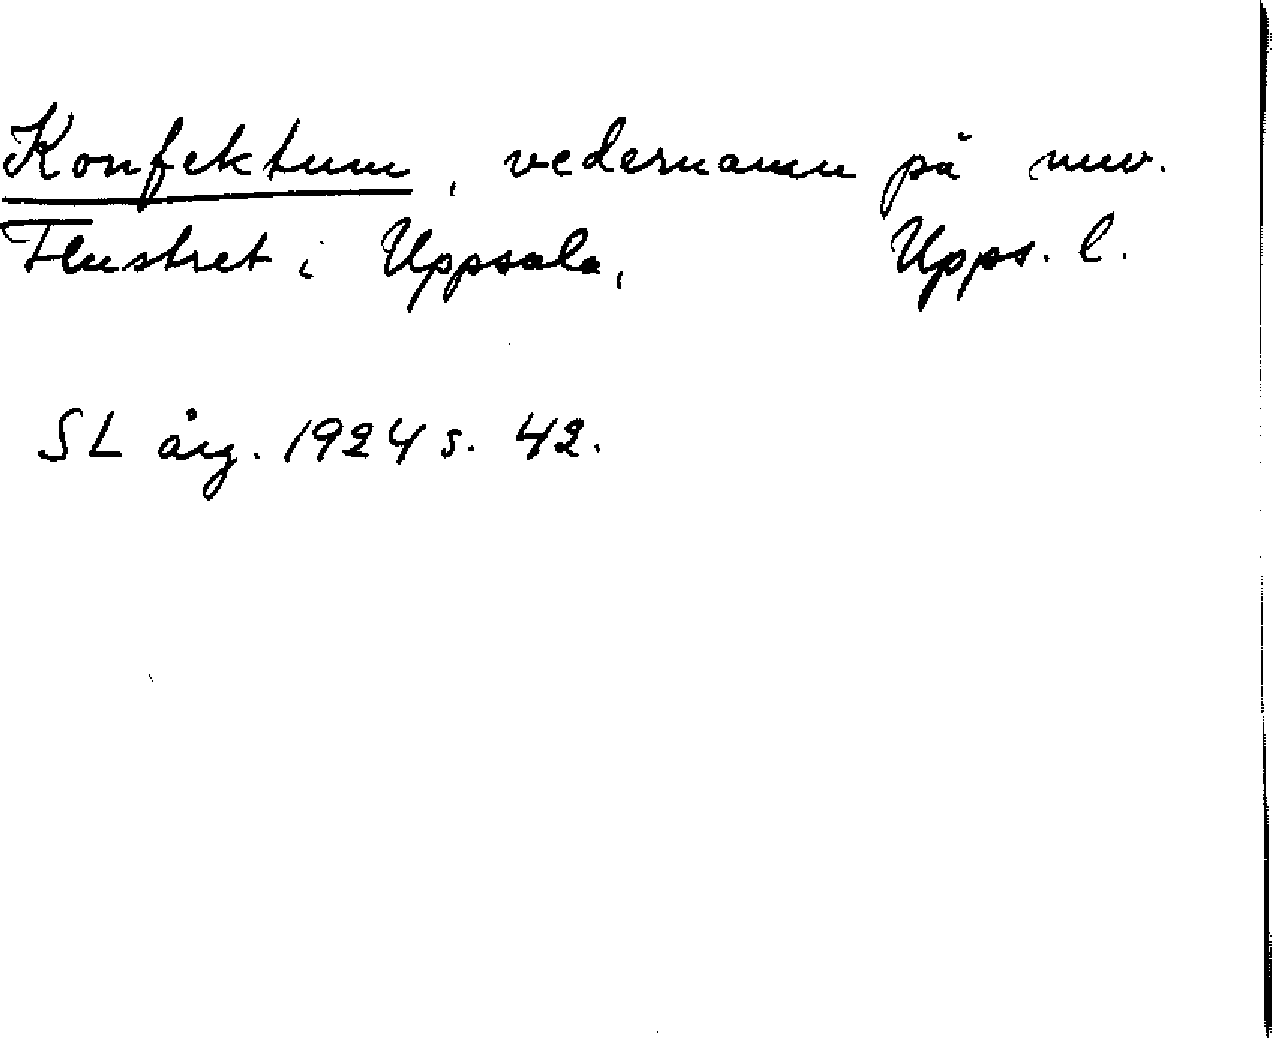 Konfektum, vedernamn på nuv.
Flustret i Uppsala, Upps. l.
SL årg. 1924 s. 42.